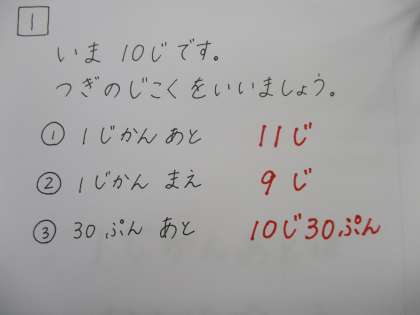 1
いま 10じです。
つぎのじこくをいいましょう。
① 1じかん あと 11じ
② 1じかん まえ 9じ
③ 30ぷん あと 10じ30ぷん